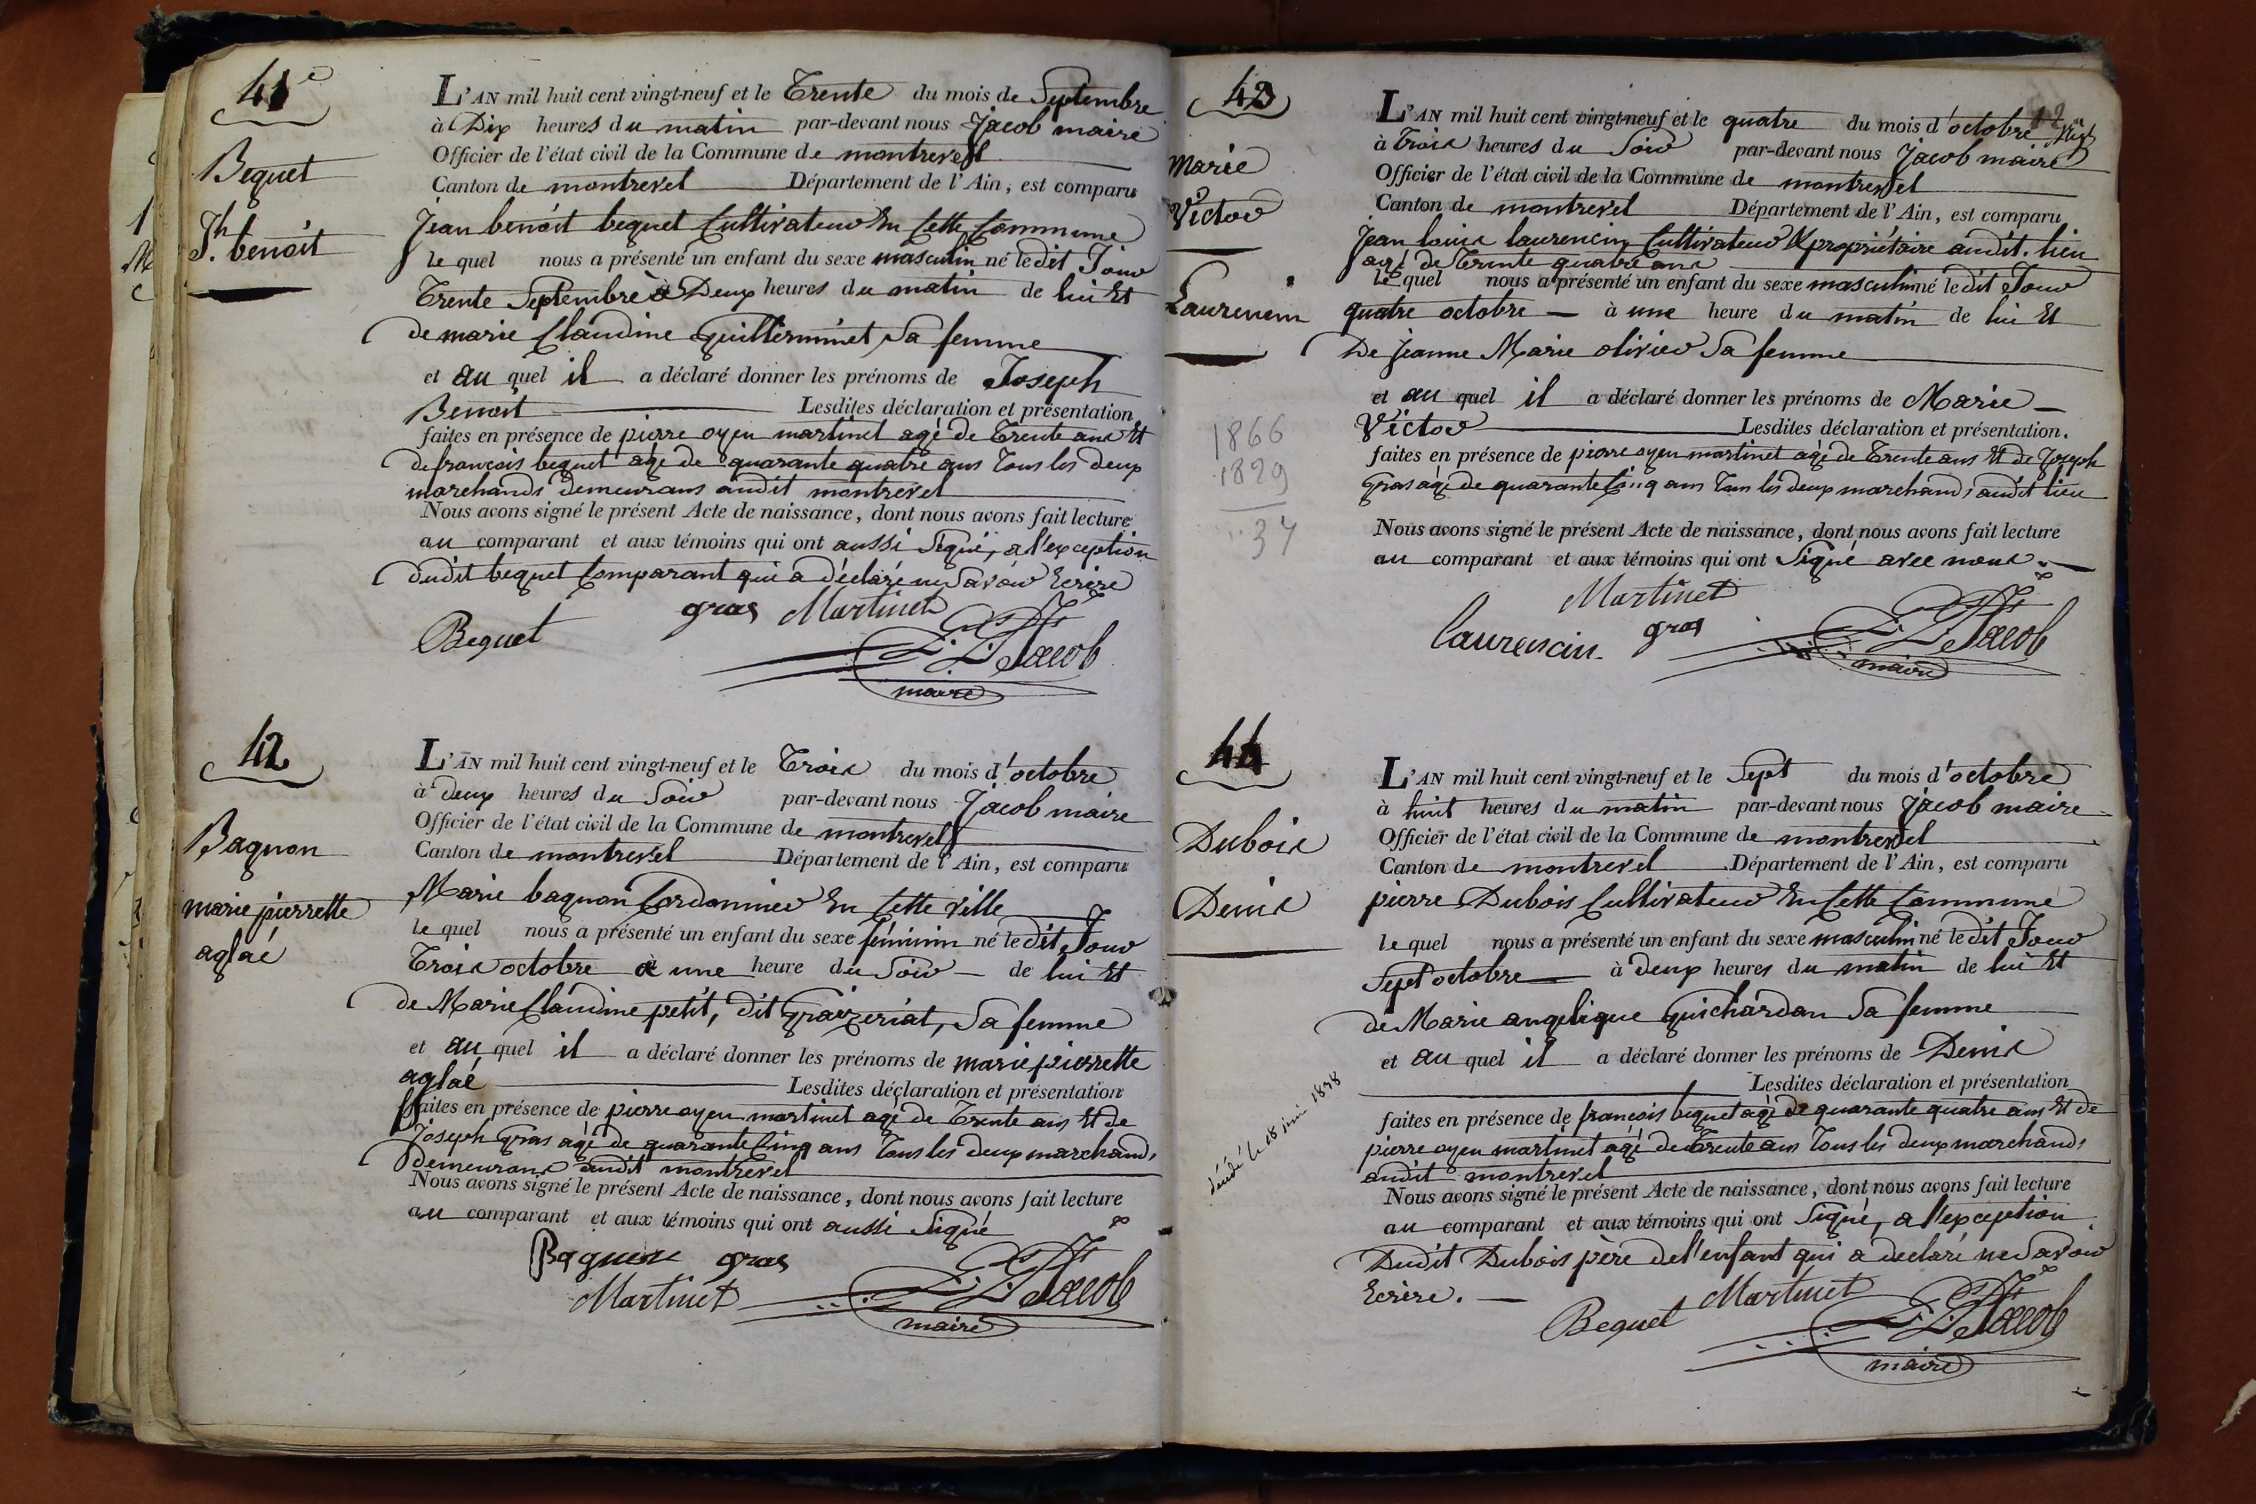 41e
Bequet
Jh. benoit
L'AN mil huit cent vingt-neuf et le Trente du mois de Septembre
à Dix heures du matin par-devant nous Jacob maire
Officier de l'état civil de la Commune de montrevel
Canton de montrevel Département de l'Ain, est comparu
Jean benoit bequet Cultivateur En Cette Commune
le quel nous a présenté un enfant du sexe masculin né le dit Jour
Trente Septembre à Deux heures du matin de lui Et
de marie Claudine Guillerminet Sa femme
et au quel il a déclaré donner les prénoms de Joseph
Benoit Lesdites déclaration et présentation
faites en présence de pierre oyen martinet agé de Trente ans Et
de françois bequet agé de quarante quatre ans Tous les deux
marchands demeurans audit montrevel
Nous avons signé le présent Acte de naissance, dont nous avons fait lecture
au comparant et aux témoins qui ont aussi Signé, a l'exception
dudit bequet Comparant qui a déclaré ne Savoir Ecrire
Bequet gras Martinet
Jacob
maire
42
Baquon
marie pierrette
aglaé
L'AN mil huit cent vingt-neuf et le Trois du mois d'octobre
à deux heures du Soir par-devant nous Jacob maire
Officier de l'état civil de la Commune de montrevel
Canton de montrevel Département de l'Ain, est comparu
Marie baquon Cordonnier En Cette ville
le quel nous a présenté un enfant du sexe féminin né le dit Jour
Trois octobre à une heure du Soir de lui Et
de Marie Claudine petit, dit Graizeriat, Sa femme
et au quel il a déclaré donner les prénoms de marie pierrette
aglaé Lesdites déclaration et présentation
faites en présence de pierre oyen martinet agé de Trente ans Et de
Joseph Gras agé de quarante Cinq ans Tous les deux marchands
demeurans audit montrevel
Nous avons signé le présent Acte de naissance, dont nous avons fait lecture
au comparant et aux témoins qui ont aussi Signé
Baquon gras
Martinet Jacob
maire
43
marie
Victor
Laurencin
1866
1829
37
L'AN mil huit cent vingt-neuf et le quatre du mois d'octobre
à Trois heures du Soir par-devant nous Jacob maire
Officier de l'état civil de la Commune de montrevel
Canton de montrevel Département de l'Ain, est comparu
Jean louis laurencin Cultivateur & propriétaire audit lieu
agé de Trente quatre ans
le quel nous a présenté un enfant du sexe masculin né le dit Jour
quatre octobre à une heure du matin de lui Et
De Jeanne Marie olivier Sa femme
et au quel il a déclaré donner les prénoms de Marie
Victor Lesdites déclaration et présentation.
faites en présence de pierre oyen martinet agé de Trente ans Et de Joseph
Gras agé de quarante Cinq ans Tous les deux marchands audit lieu
Nous avons signé le présent Acte de naissance, dont nous avons fait lecture
au comparant et aux témoins qui ont Signé avec nous.
Martinet
laurencin gras Jacob
maire
44
Dubois
Denis
décédé le 18 juin 1838
L'AN mil huit cent vingt-neuf et le Sept du mois d'octobre
à huit heures du matin par-devant nous Jacob maire
Officier de l'état civil de la Commune de montrevel
Canton de montrevel Département de l'Ain, est comparu
pierre Dubois Cultivateur En Cette Commune
le quel nous a présenté un enfant du sexe masculin né le dit Jour
Sept octobre à deux heures du matin de lui Et
de Marie angelique Guichardan Sa femme
et au quel il a déclaré donner les prénoms de Denis
Lesdites déclaration et présentation
faites en présence de françois bequet agé de quarante quatre ans Et de
pierre oyen martinet agé de Trente ans Tous les deux marchands
audit montrevel
Nous avons signé le présent Acte de naissance, dont nous avons fait lecture
au comparant et aux témoins qui ont Signé, a l'exception
Dudit Dubois père de l'enfant qui a declaré ne Savoir
Ecrire.
Bequet Martinet Jacob
maire